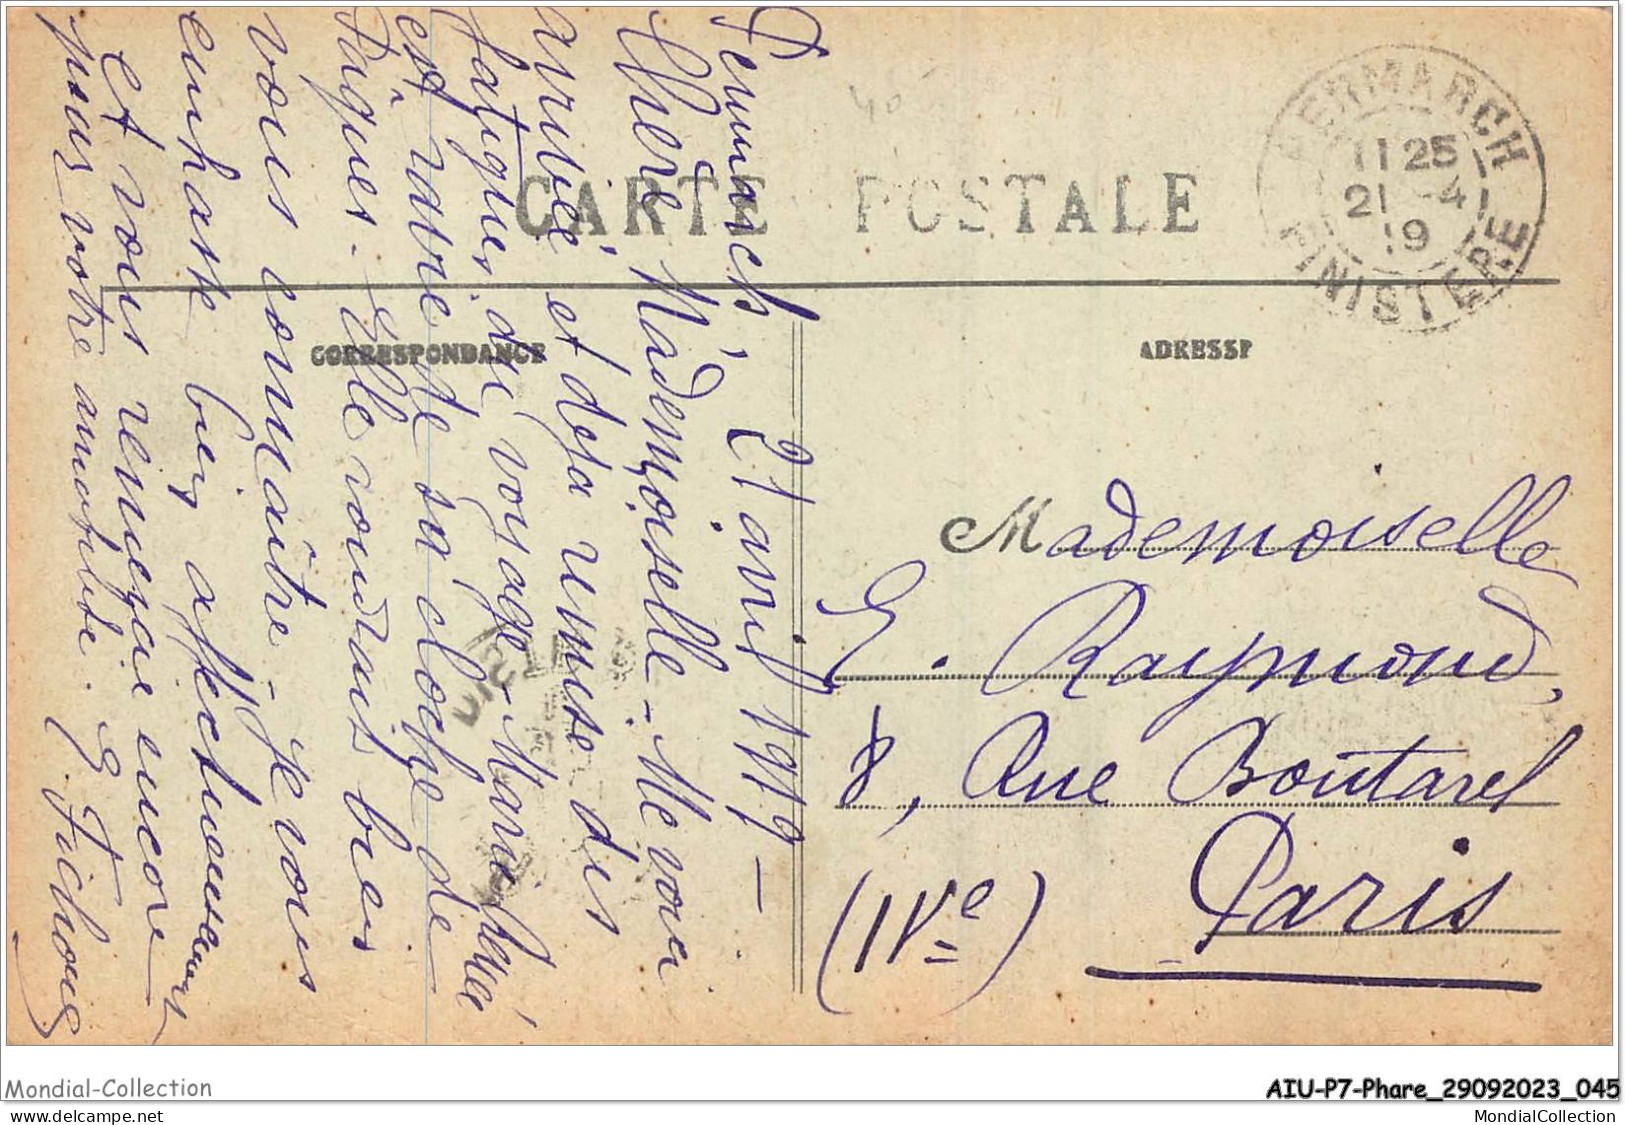 CARTE POSTALE
CORRESPONDANCE
ADRESSE
PENMARCH
11 25
21 -4
19
FINISTERE
40
Penmarch, 21 avril 1919 -
Chère Mademoiselle - Me voici
arrivée et déjà remise des
fatigues de voyage - Marie
est ravie de sa cloche de
Pâques. Elle voudrait bien
vous connaître - Je vous
embrasse bien affectueusement
et vous remercie encore
pour votre amabilité. G. Fichous
Mademoiselle
G. Raymond,
8, Rue Boutarel
Paris
(IVe)
Mondial-Collection
AIU-P7-Phare_29092023_045
MondialCollection